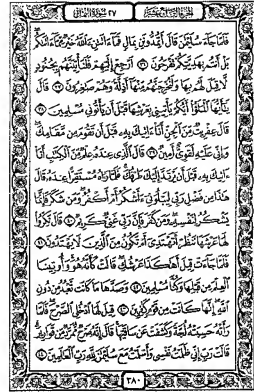 الجزء التاسع عشر ٢٧ سورة النمل
فَلَمَّا جَآءَ سُلَيْمَٰنَ قَالَ أَتُمِدُّونَنِ بِمَالٍ فَمَآ ءَاتَىٰنِۦَ ٱللَّهُ خَيْرٌ مِّمَّآ ءَاتَىٰكُم
بَلْ أَنتُم بِهَدِيَّتِكُمْ تَفْرَحُونَ ۝٣٦ ٱرْجِعْ إِلَيْهِمْ فَلَنَأْتِيَنَّهُم بِجُنُودٍ
لَّا قِبَلَ لَهُم بِهَا وَلَنُخْرِجَنَّهُم مِّنْهَآ أَذِلَّةً وَهُمْ صَٰغِرُونَ ۝٣٧ قَالَ
يَٰٓأَيُّهَا ٱلْمَلَؤُا۟ أَيُّكُمْ يَأْتِينِى بِعَرْشِهَا قَبْلَ أَن يَأْتُونِى مُسْلِمِينَ ۝٣٨
قَالَ عِفْرِيتٌ مِّنَ ٱلْجِنِّ أَنَا۠ ءَاتِيكَ بِهِۦ قَبْلَ أَن تَقُومَ مِن مَّقَامِكَ
وَإِنِّى عَلَيْهِ لَقَوِىٌّ أَمِينٌ ۝٣٩ قَالَ ٱلَّذِى عِندَهُۥ عِلْمٌ مِّنَ ٱلْكِتَٰبِ أَنَا۠
ءَاتِيكَ بِهِۦ قَبْلَ أَن يَرْتَدَّ إِلَيْكَ طَرْفُكَ فَلَمَّا رَءَاهُ مُسْتَقِرًّا عِندَهُۥ قَالَ
هَٰذَا مِن فَضْلِ رَبِّى لِيَبْلُوَنِىٓ ءَأَشْكُرُ أَمْ أَكْفُرُ وَمَن شَكَرَ فَإِنَّمَا
يَشْكُرُ لِنَفْسِهِۦ وَمَن كَفَرَ فَإِنَّ رَبِّى غَنِىٌّ كَرِيمٌ ۝٤٠ قَالَ نَكِّرُوا۟
لَهَا عَرْشَهَا نَنظُرْ أَتَهْتَدِىٓ أَمْ تَكُونُ مِنَ ٱلَّذِينَ لَا يَهْتَدُونَ ۝٤١
فَلَمَّا جَآءَتْ قِيلَ أَهَٰكَذَا عَرْشُكِ قَالَتْ كَأَنَّهُۥ هُوَ وَأُوتِينَا
ٱلْعِلْمَ مِن قَبْلِهَا وَكُنَّا مُسْلِمِينَ ۝٤٢ وَصَدَّهَا مَا كَانَت تَّعْبُدُ مِن دُونِ
ٱللَّهِ إِنَّهَا كَانَتْ مِن قَوْمٍ كَٰفِرِينَ ۝٤٣ قِيلَ لَهَا ٱدْخُلِى ٱلصَّرْحَ فَلَمَّا
رَأَتْهُ حَسِبَتْهُ لُجَّةً وَكَشَفَتْ عَن سَاقَيْهَا قَالَ إِنَّهُۥ صَرْحٌ مُّمَرَّدٌ مِّن قَوَارِيرَ
قَالَتْ رَبِّ إِنِّى ظَلَمْتُ نَفْسِى وَأَسْلَمْتُ مَعَ سُلَيْمَٰنَ لِلَّهِ رَبِّ ٱلْعَٰلَمِينَ ۝٤٤
٣٨٠